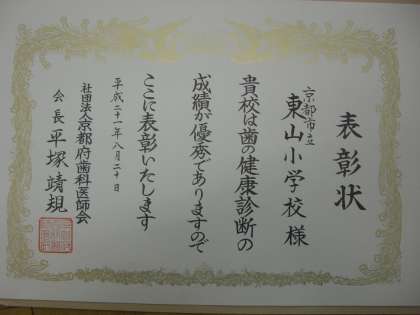 表彰状
京都市立
東山小学校様
貴校は歯の健康診断の
成績が優秀でありますので
ここに表彰いたします
平成二十一年八月二十日
社団法人京都府歯科医師会
会長平塚靖規